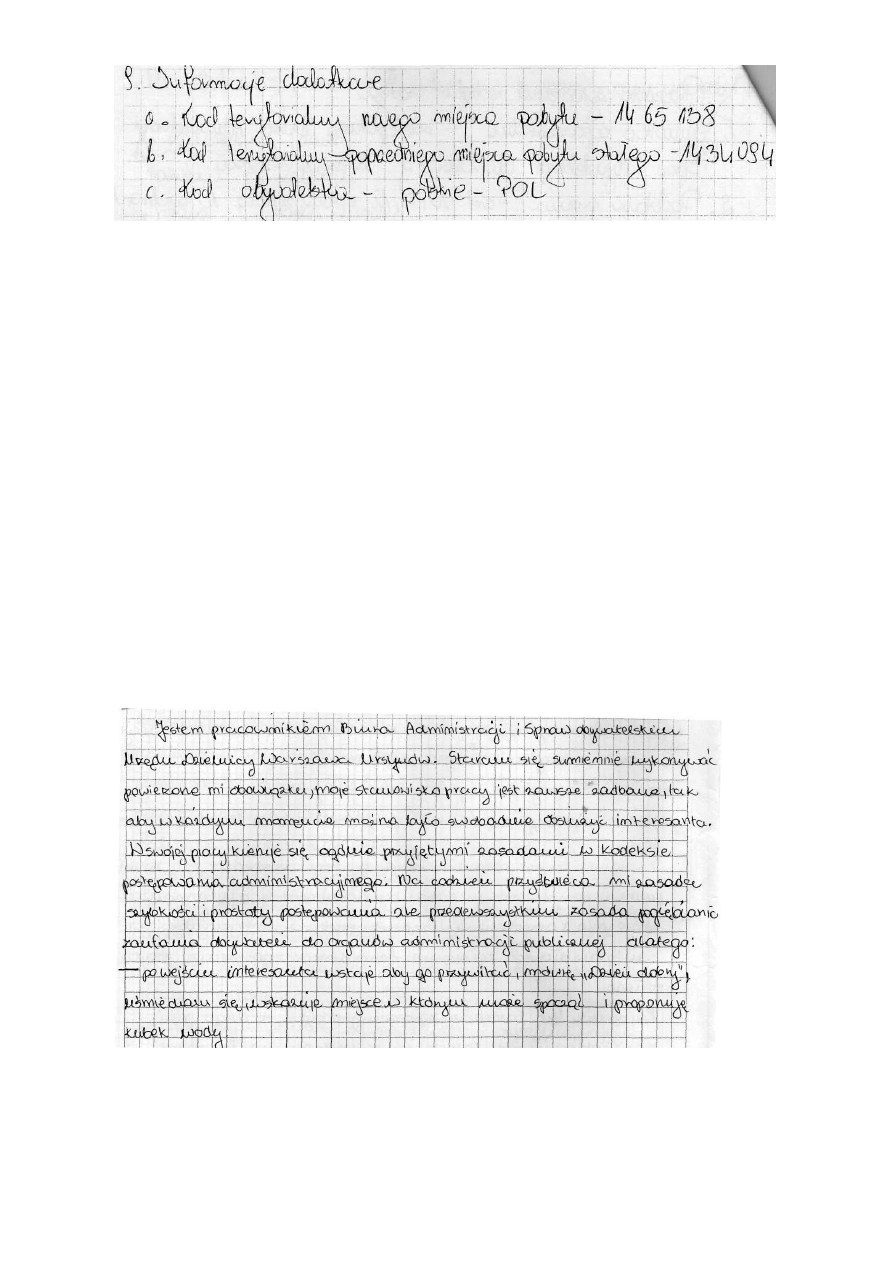 9. Informacje dodatkowe
a. Kod terytorialny nowego miejsca pobytu - 14 65 138
b. Kod terytorialny poprzedniego miejsca pobytu stałego - 1434094
c. Kod obywatelstwa - polskie - POL
Jestem pracownikiem Biura Administracji i Spraw obywatelskich
Urzędu Dzielnicy Warszawa Ursynów. Staram się sumiennie wykonywać
powierzone mi obowiązki, moje stanowisko pracy jest zawsze zadbane, tak
aby w każdym momencie można było swobodnie obsłużyć interesanta.
W swojej pracy kieruję się ogólnie przyjętymi zasadami w Kodeksie
postępowania administracyjnego. Na codzień przyświeca mi zasada
szybkości i prostoty postępowania ale przedewszystkim zasada pogłębianie
zaufania obywateli do organów administracji publicznej dlatego:
- po wejściu interesanta wstaję aby go przywitać, mówię „Dzień dobry",
uśmiecham się, wskazuje miejsce w którym może spocząć i proponuję
kubek wody